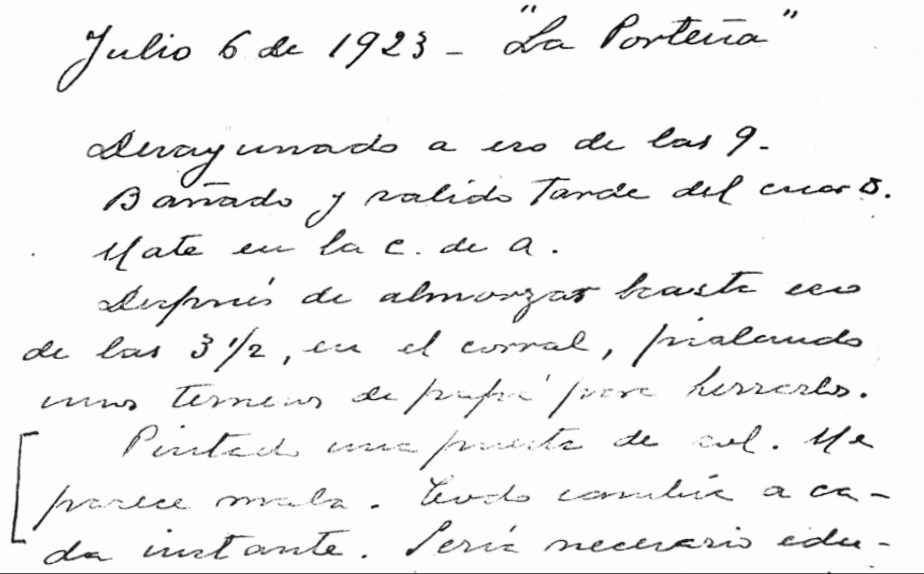 Julio 6 de 1923 - "La Porteña"
Desayunado a eso de las 9.
Bañado y salido tarde del cuarto.
Mate en la c. de a.
Después de almorzar hasta eso
de las 3 1/2, en el corral, pialando
unos terneros de papá para herrarlos.
Pintado una puesta de sol. Me
parece mala. Todo cambia a ca-
da instante. Sería necesario edu-